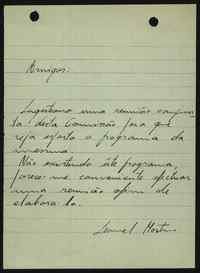 Amigos:
Sugeriamos uma reunião conjun
ta desta Comissão para que
seja exposto o programa da
mesma.
Não existindo êste programa,
parece-me conveniente efectuar
uma reunião afim de
elabora-lo.